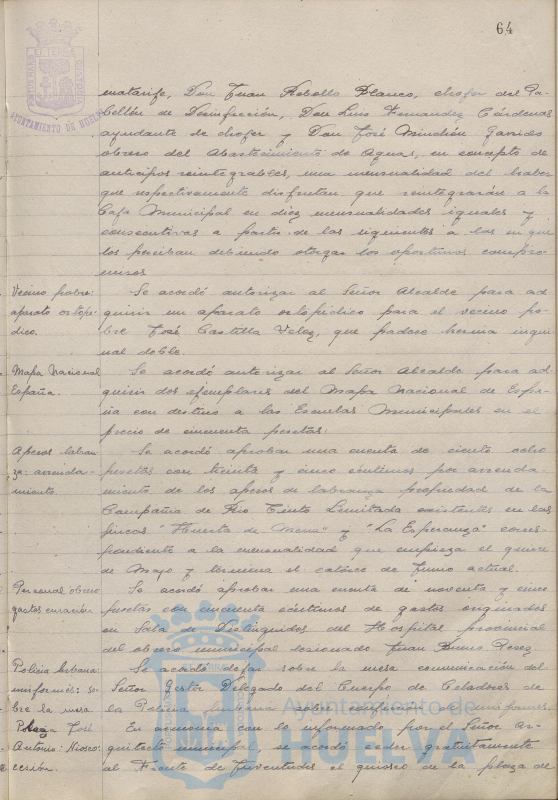 64
AYUNTAMIENTO DE HUELVA
matarife, Don Juan Rebollo Blanco, chofer del Pa-
bellón de Desinfección, Don Luis Fernandez Cárdenas
ayudante de chofer y Don José Garrido
obrero del Abastecimiento de Aguas, en concepto de
anticipos reintegrables, una mensualidad del haber
que respectivamente disfrutan que reintegrarán a la
Caja Municipal en diez mensualidades iguales y
consecutivas a partir de las siguientes a las en que
los perciban debiendo otorgar los oportunos compro-
misos
Vecino pobre:
aparato ortopé-
dico.
Se acordó autorizar al Señor Alcalde para ad-
quirir un aparato ortopédico para el vecino po-
bre José Castilla Velez, que padece hernia ingui-
nal doble.
Mapa Nacional
España.
Se acordó autorizar al Señor Alcalde para ad-
quirir dos ejemplares del Mapa Nacional de Espa-
ña con destino a las Escuelas Municipales en el
precio de cincuenta pesetas.
Aperos labran-
za: arrenda-
miento.
Se acordó aprobar una cuenta de ciento ocho
pesetas con treinta y cinco céntimos por arrenda-
miento de los aperos de labranza propiedad de la
Compañia de Rio Tinto Limitada existentes en las
fincas "Huerta de Mena" y "La Esperanza" corres-
pondiente a la mensualidad que empieza el quince
de Mayo y termina el catorce de Junio actual.
Personal obrero
gastos curación
Se acordó aprobar una cuenta de noventa y cinco
pesetas con cincuenta céntimos de gastos originados
en Sala de Distinguidos del Hospital provincial
del obrero municipal lesionado Juan Bueno Perez
Policia Urbana:
uniformes: so-
bre la mesa
Se acordó dejar sobre la mesa comunicación del
Señor Gestor Delegado del Cuerpo de Celadores de
la Policia Urbana sobre confección de uniformes.
Plaza José
Antonio: Kiosco:
cesión.
En armonia con lo informado por el Señor Ar-
quitecto municipal, se acordó ceder gratuitamente
al Frente de Juventudes el quiosco de la plaza de
Ayuntamiento de
HUELVA